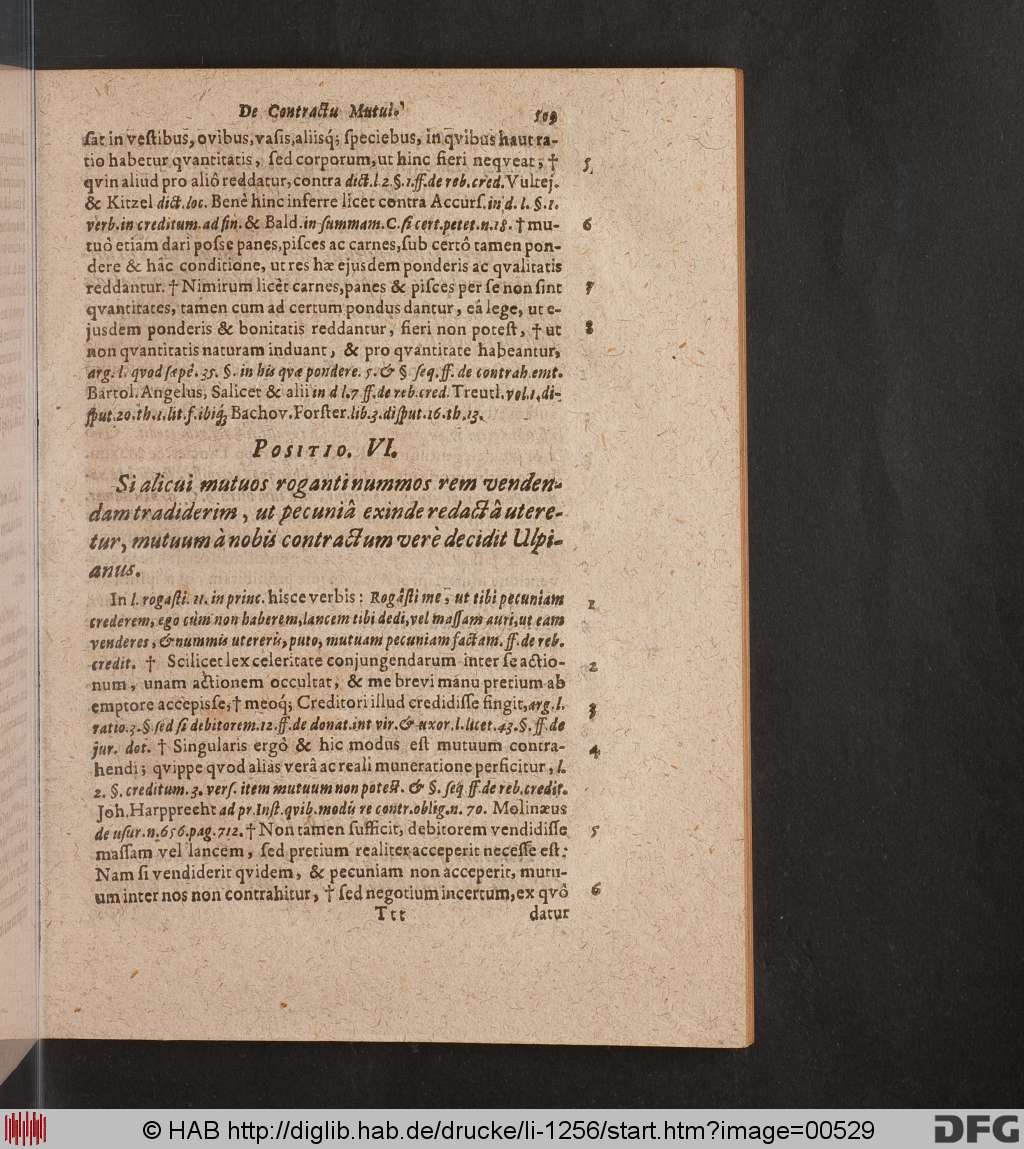 De Contractu Mutui. 509
sat in vestibus, ovibus, vasis, aliisq́; speciebus, in qvibus haut ra-
tio habetur qvantitatis, sed corporum, ut hinc fieri neqveat, † 5
qvin aliud pro aliô reddatur, contra dict. l. 2. §. 1. ff. de reb. cred. Vultej.
& Kitzel dict. loc. Benè hinc inferre licèt contra Accurs. in d. l. §. 1.
verb. in creditum. ad fin. & Bald. in summam. C. si cert. petet. n. 18. † mu- 6
tuò etiam dari posse panes, pisces ac carnes, sub certô tamen pon-
dere & hâc conditione, ut res hæ ejusdem ponderis ac qvalitatis
reddantur. † Nimirum licèt carnes, panes & pisces per se non sint 7
qvantitates, tamen cum ad certum pondus dantur, eâ lege, ut e-
jusdem ponderis & bonitatis reddantur, fieri non potest, † ut 8
non qvantitatis naturam induant, & pro qvantitate habeantur,
arg. l. qvod sæpè. 35. §. in his qvæ pondere. 5. & § seq. ff. de contrah. emt.
Bartol. Angelus, Salicet & alii in d l. 7 ff. de reb. cred. Treutl. vol. 1. di-
sput. 20. th. 1. lit. f. ibiq́; Bachov. Forster. lib. 3. disput. 16. th. 13.
POSITIO. VI.
Si alicui mutuos roganti nummos rem venden-
dam tradiderim, ut pecuniâ exinde redactâ utere-
tur, mutuum à nobis contractum verè decidit Ulpi-
anus.
In l. rogasti. 11. in princ. hisce verbis: Rogâsti me, ut tibi pecuniam 1
crederem, ego cùm non haberem, lancem tibi dedi, vel massam auri, ut eam
venderes, & nummis utereris, puto, mutuam pecuniam factam. ff. de reb.
credit. † Scilicet lex celeritate conjungendarum inter se actio- 2
num, unam actionem occultat, & me brevi manu pretium ab
emptore accepisse, † meoq́; Creditori illud credidisse fingit, arg. l. 3
ratio. 3. § sed si debitorem. 12. ff. de donat. int vir. & uxor. l. licet. 43. §. ff. de
jur. dot. † Singularis ergò & hic modus est mutuum contra- 4
hendi; qvippe qvod alias verâ ac reali muneratione perficitur, l.
2. §. creditum. 3. vers. item mutuum non potest. & §. seq ff. de reb. credit.
Joh. Harpprecht ad pr. Inst. qvib. modis re contr. oblig. n. 70. Molinæus
de usur. n. 656. pag. 712. † Non tamen sufficit, debitorem vendidisse 5
massam vel lancem, sed pretium realiter acceperit necesse est:
Nam si vendiderit qvidem, & pecuniam non acceperit, mutu-
um inter nos non contrahitur, † sed negotium incertum, ex qvô 6
Ttt datur
© HAB http://diglib.hab.de/drucke/li-1256/start.htm?image=00529 DFG